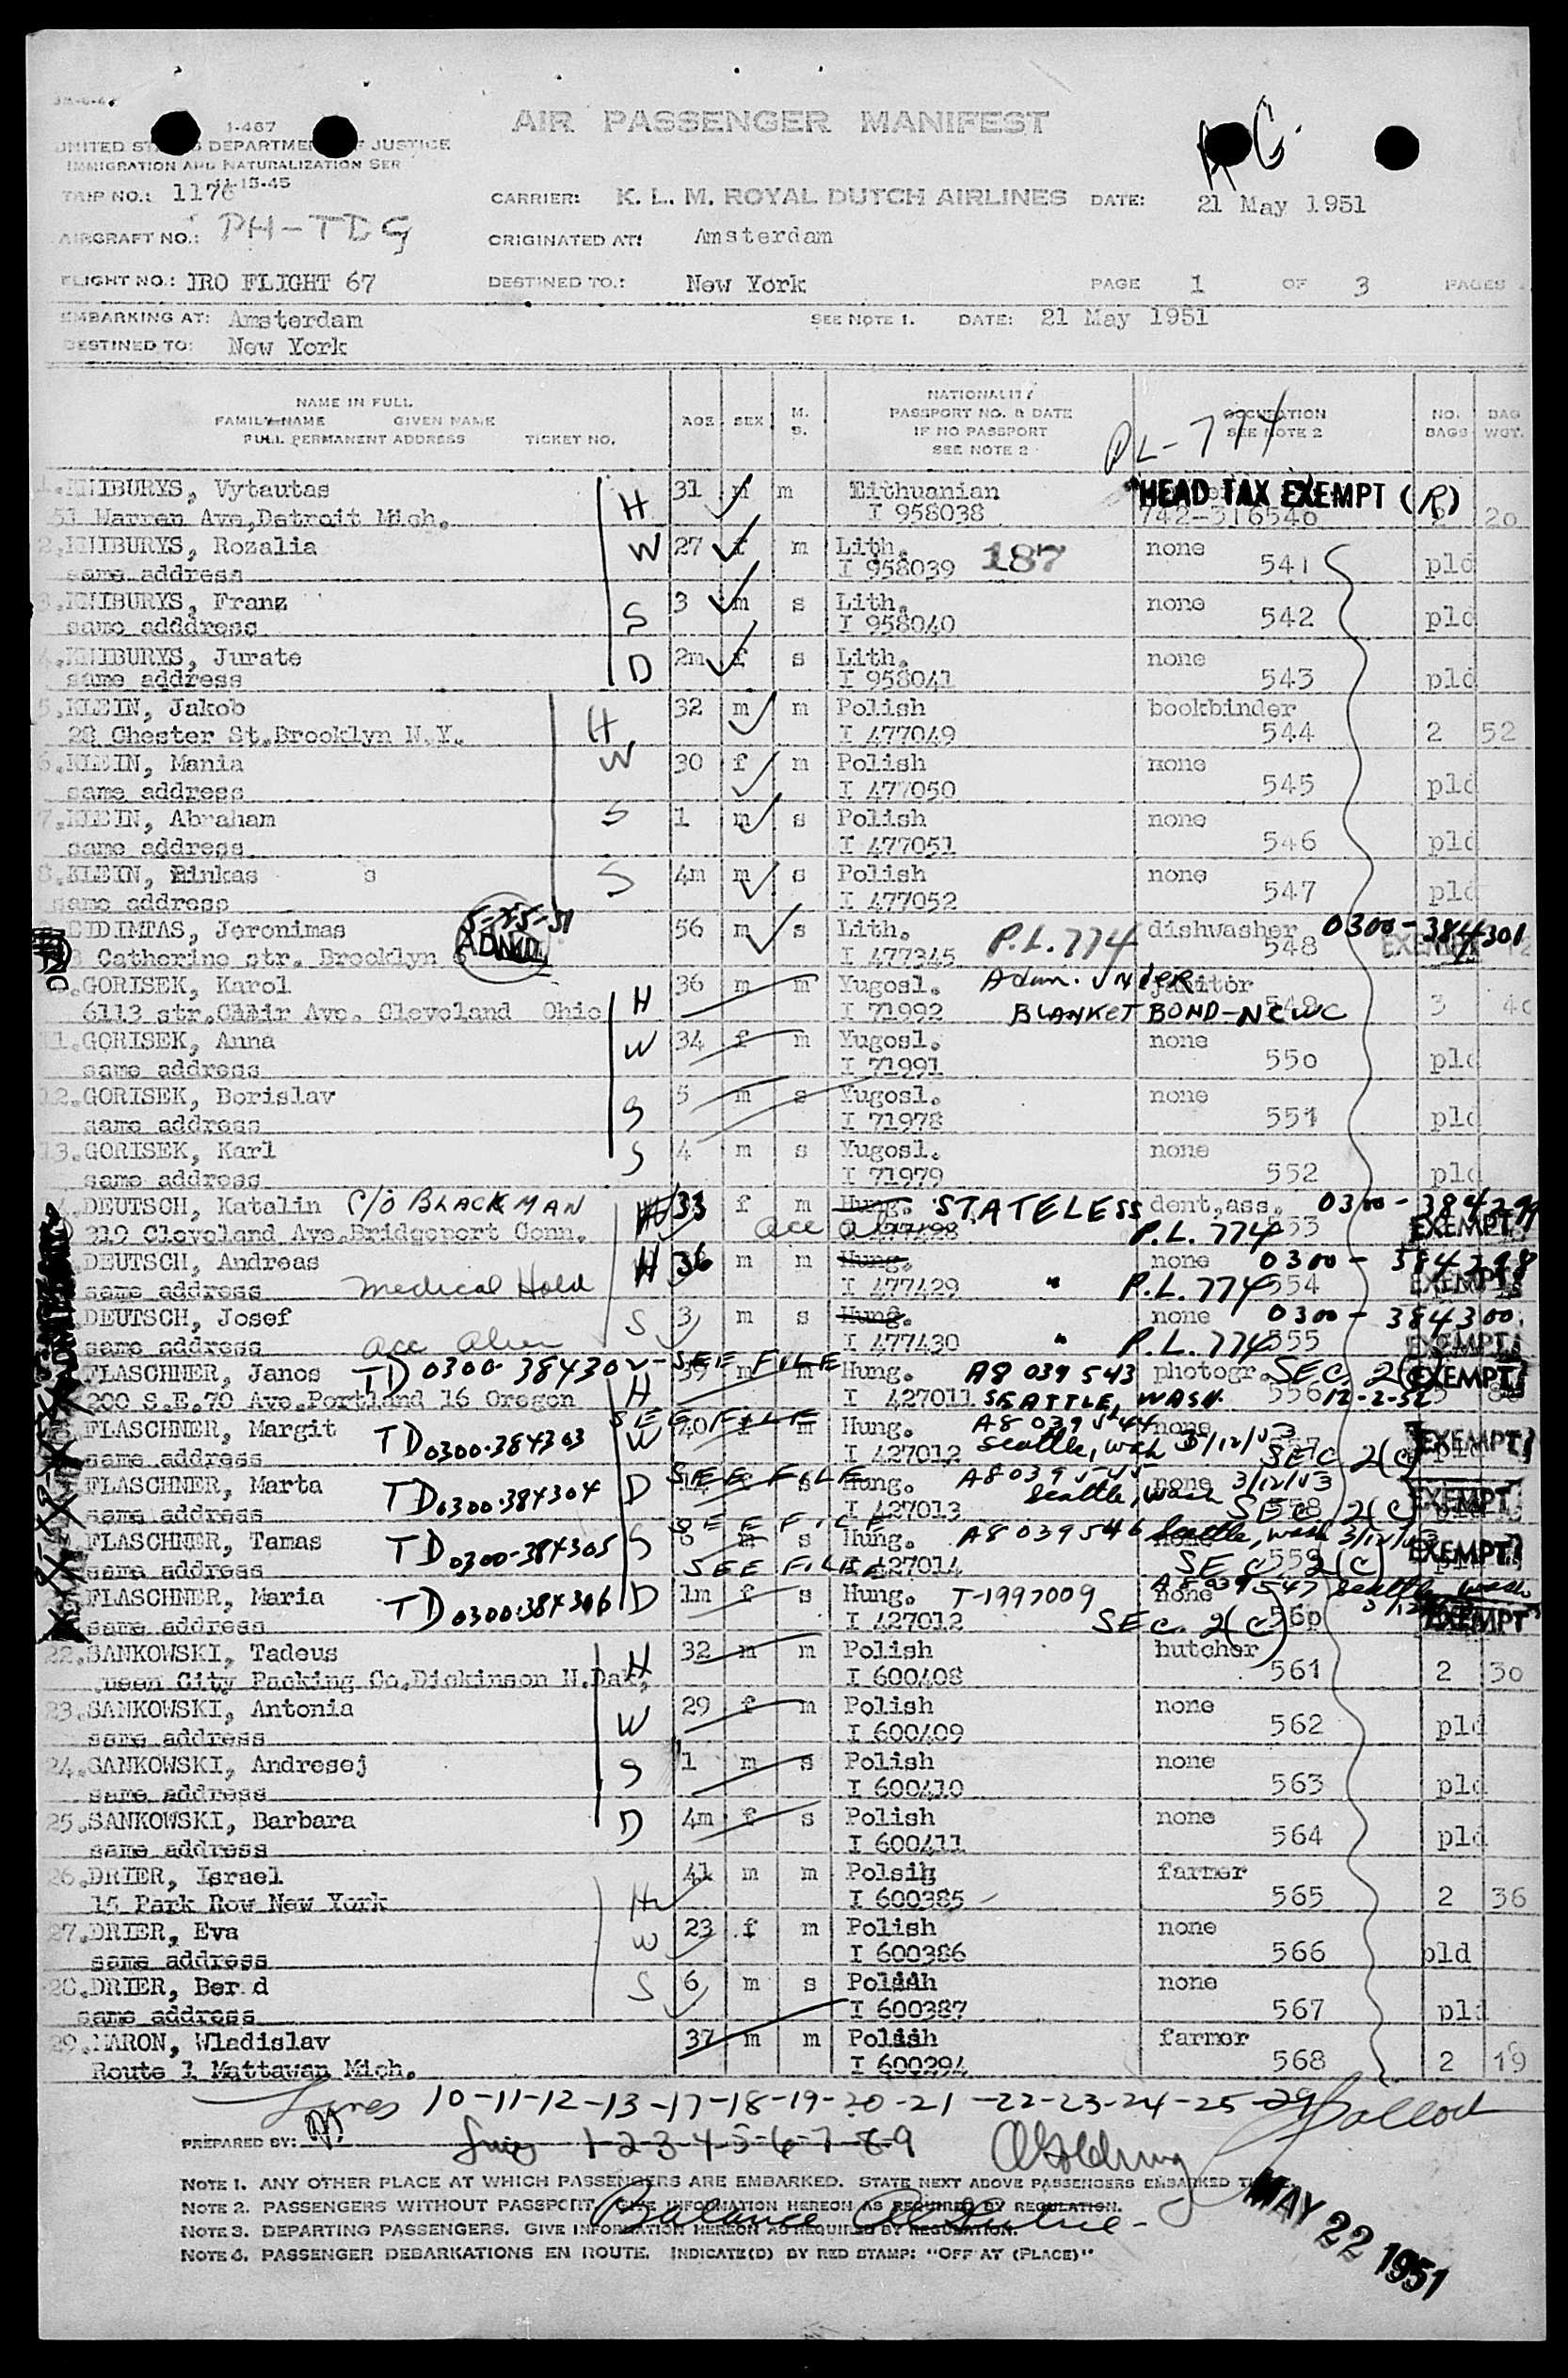 AIR PASSENGER MANIFEST
I-467
UNITED STATES DEPARTMENT OF JUSTICE
IMMIGRATION AND NATURALIZATION SER
11-15-45
TRIP NO.: 1176 CARRIER: K. L. M. ROYAL DUTCH AIRLINES DATE: 21 May 1951
AIRCRAFT NO.: PH-TDG ORIGINATED AT: Amsterdam
FLIGHT NO.: IRO FLIGHT 67 DESTINED TO.: New York PAGE 1 OF 3 PAGES
EMBARKING AT: Amsterdam SEE NOTE 1. DATE: 21 May 1951
DESTINED TO: New York
NAME IN FULL
FAMILY NAME GIVEN NAME
FULL PERMANENT ADDRESS TICKET NO.
AGE SEX M. S.
NATIONALITY
PASSPORT NO. & DATE
IF NO PASSPORT
SEE NOTE 2
OCCUPATION
SEE NOTE 2
PL-774
NO. BAGS BAG WGT.
KNIBURYS, Vytautas H 31 m m Lithuanian HEAD TAX EXEMPT (R)
51 Warren Ave,Detroit Mich. I 958038 742-316540 2 20
2.KNIBURYS, Rozalia W 27 f m Lith. 187 none
same address I 958039 541 pld
3.KNIBURYS, Franz S 3 m s Lith. none
same adddress I 958040 542 pld
4.KNIBURYS, Jurate D 2m f s Lith. none
same address I 958041 543 pld
5.KLEIN, Jakob H 32 m m Polish bookbinder
28 Chester St.Brooklyn N.Y. I 477049 544 2 52
6.KLEIN, Mania W 30 f m Polish none
same address I 477050 545 pld
7.KLEIN, Abraham S 1 m s Polish none
same address I 477051 546 pld
8.KLEIN, Pinkas s S 4m m s Polish none
same address I 477052 547 pld
Jeronimas 5-25-51 56 m s Lith. P.L.774 dishwasher 0300-384301
Catherine str. Brooklyn ADMTD I 477345 548 EXEMPT
GORISEK, Karol H 36 m m Yugosl. Adm. UNDER janitor
6113 str.Clair Ave. Cleveland Ohio I 71992 BLANKET BOND-NCWC 549 3 40
11.GORISEK, Anna W 34 f m Yugosl. none
same address I 71991 550 pld
12.GORISEK, Borislav S 5 m s Yugosl. none
same address I 71978 551 pld
13.GORISEK, Karl S 4 m s Yugosl. none
same address I 71979 552 pld
DEUTSCH, Katalin C/O BLACKMAN 33 f m Hung. STATELESS dent.ass. 0300-384299
219 Cleveland Ave.Bridgeport Conn. P.L.774 553 EXEMPT
DEUTSCH, Andreas H 36 m m Hung. none 0300-384298
same address Medical Hold I 477429 " P.L.774 554 EXEMPT
DEUTSCH, Josef S 3 m s Hung. none 0300-384300
same address acc alien I 477430 " P.L.774 555 EXEMPT
FLASCHNER, Janos TD 0300-384302-SEE FILE 39 m m Hung. A8 039 543 photogr. SEC. 2(c) EXEMPT
200 S.E.70 Ave.Portland 16 Oregon H I 427011 SEATTLE, WASH. 556 12-2-52
FLASCHNER, Margit TD 0300-384303 SEE FILE W 40 f m Hung. A8 039 544 none
same address I 427012 Seattle, Wash 3/12/53 SEC 2(c) EXEMPT
FLASCHNER, Marta TD 0300-384304 D SEE FILE f s Hung. none 3/12/53
same address I 427013 Seattle, Wash SEC 2(c) 558 EXEMPT
FLASCHNER, Tamas TD 0300-384305 S SEE FILE m s Hung. A8 039546 Seattle, Wash 3/12/53 none
same address SEE FILE I 427014 SEC 2(c) 559 EXEMPT
FLASCHNER, Maria TD 0300-384306 D 1m f s Hung. T-1997009 A8 039 547 Seattle Wash none
same address I 427012 SEC. 2(c) 560 EXEMPT
22.SANKOWSKI, Tadeus H 32 m m Polish butcher
Queen City Packing Co.Dickinson N.Dak. I 600408 561 2 30
23.SANKOWSKI, Antonia W 29 f m Polish none
same address I 600409 562 pld
24.SANKOWSKI, Andresej S 1 m s Polish none
same address I 600410 563 pld
25.SANKOWSKI, Barbara D 4m f s Polish none
same address I 600411 564 pld
26.DRIER, Israel H 41 m m Polsih farmer
15 Park Row New York I 600385 565 2 36
27.DRIER, Eva W 23 f m Polish none
same address I 600386 566 pld
28.DRIER, Ber d S 6 m s Polish none
same address I 600387 567 pld
29.MARON, Wladislav 37 m m Polish farmer
Route 1 Mattawan Mich. I 600394 568 2 19
Lines 10-11-12-13-17-18-19-20-21-22-23-24-25-29
PREPARED BY: Lines 1-2-3-4-5-6-7-8-9
NOTE 1. ANY OTHER PLACE AT WHICH PASSENGERS ARE EMBARKED. STATE NEXT ABOVE PASSENGERS EMBARKED
NOTE 2. PASSENGERS WITHOUT PASSPORT, GIVE INFORMATION HEREON AS REQUIRED BY REGULATION.
Balance
NOTE 3. DEPARTING PASSENGERS. GIVE INFORMATION HEREON AS REQUIRED BY REGULATION.
NOTE 4. PASSENGER DEBARKATIONS EN ROUTE. INDICATE(D) BY RED STAMP: "OFF AT (PLACE)"
MAY 22 1951